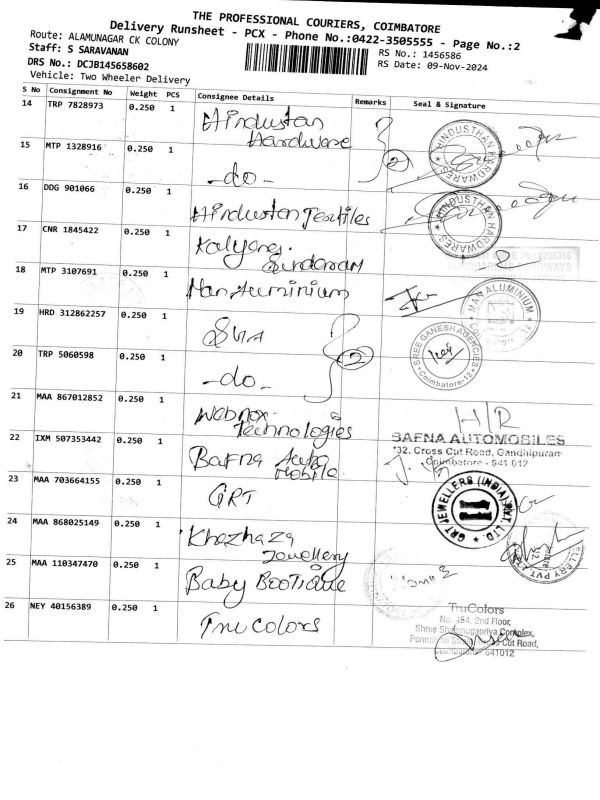 THE PROFESSIONAL COURIERS, COIMBATORE
Delivery Runsheet - PCX - Phone No.:0422-3505555 - Page No.:2
Route: ALAMUNAGAR CK COLONY
RS No.: 1456586
Staff: S SARAVANAN
RS Date: 09-Nov-2024
DRS No.: DCJB145658602
Vehicle: Two Wheeler Delivery
S No Consignment No Weight PCS Consignee Details Remarks Seal & Signature
14 TRP 7828973 0.250 1 Hindustan Hardware
15 MTP 1328916 0.250 1 -do- 2
HINDUSTHAN HARDWARES
16 DDG 901066 0.250 1 Hindustan Textiles
HINDUSTHAN HARDWARES
17 CNR 1845422 0.250 1 Kalyani Sundaram
18 MTP 3107691 0.250 1 Man Aluminium
MAN ALUMINIUM
19 HRD 312862257 0.250 1 SGA
20 TRP 5060598 0.250 1 -do- 2
SREE GANESH AGENCIES
Coimbatore-12
21 MAA 867012852 0.250 1 Webnox Technologies
H/R
22 IXM 507353442 0.250 1 Bafna Auto Mobile
BAFNA AUTOMOBILES
732, Cross Cut Road, Gandhipuram
Coimbatore - 641 012
23 MAA 703664155 0.250 1 GRT
GRT JEWELLERS (INDIA) PVT. LTD.
Security
24 MAA 868025149 0.250 1 Khazhaza Jewellery
25 MAA 110347470 0.250 1 Baby Bootique
26 NEY 40156389 0.250 1 Tru colors
TruColors
No. 454, 2nd Floor,
Shree Complex,
Cut Road,
Coimbatore - 641012